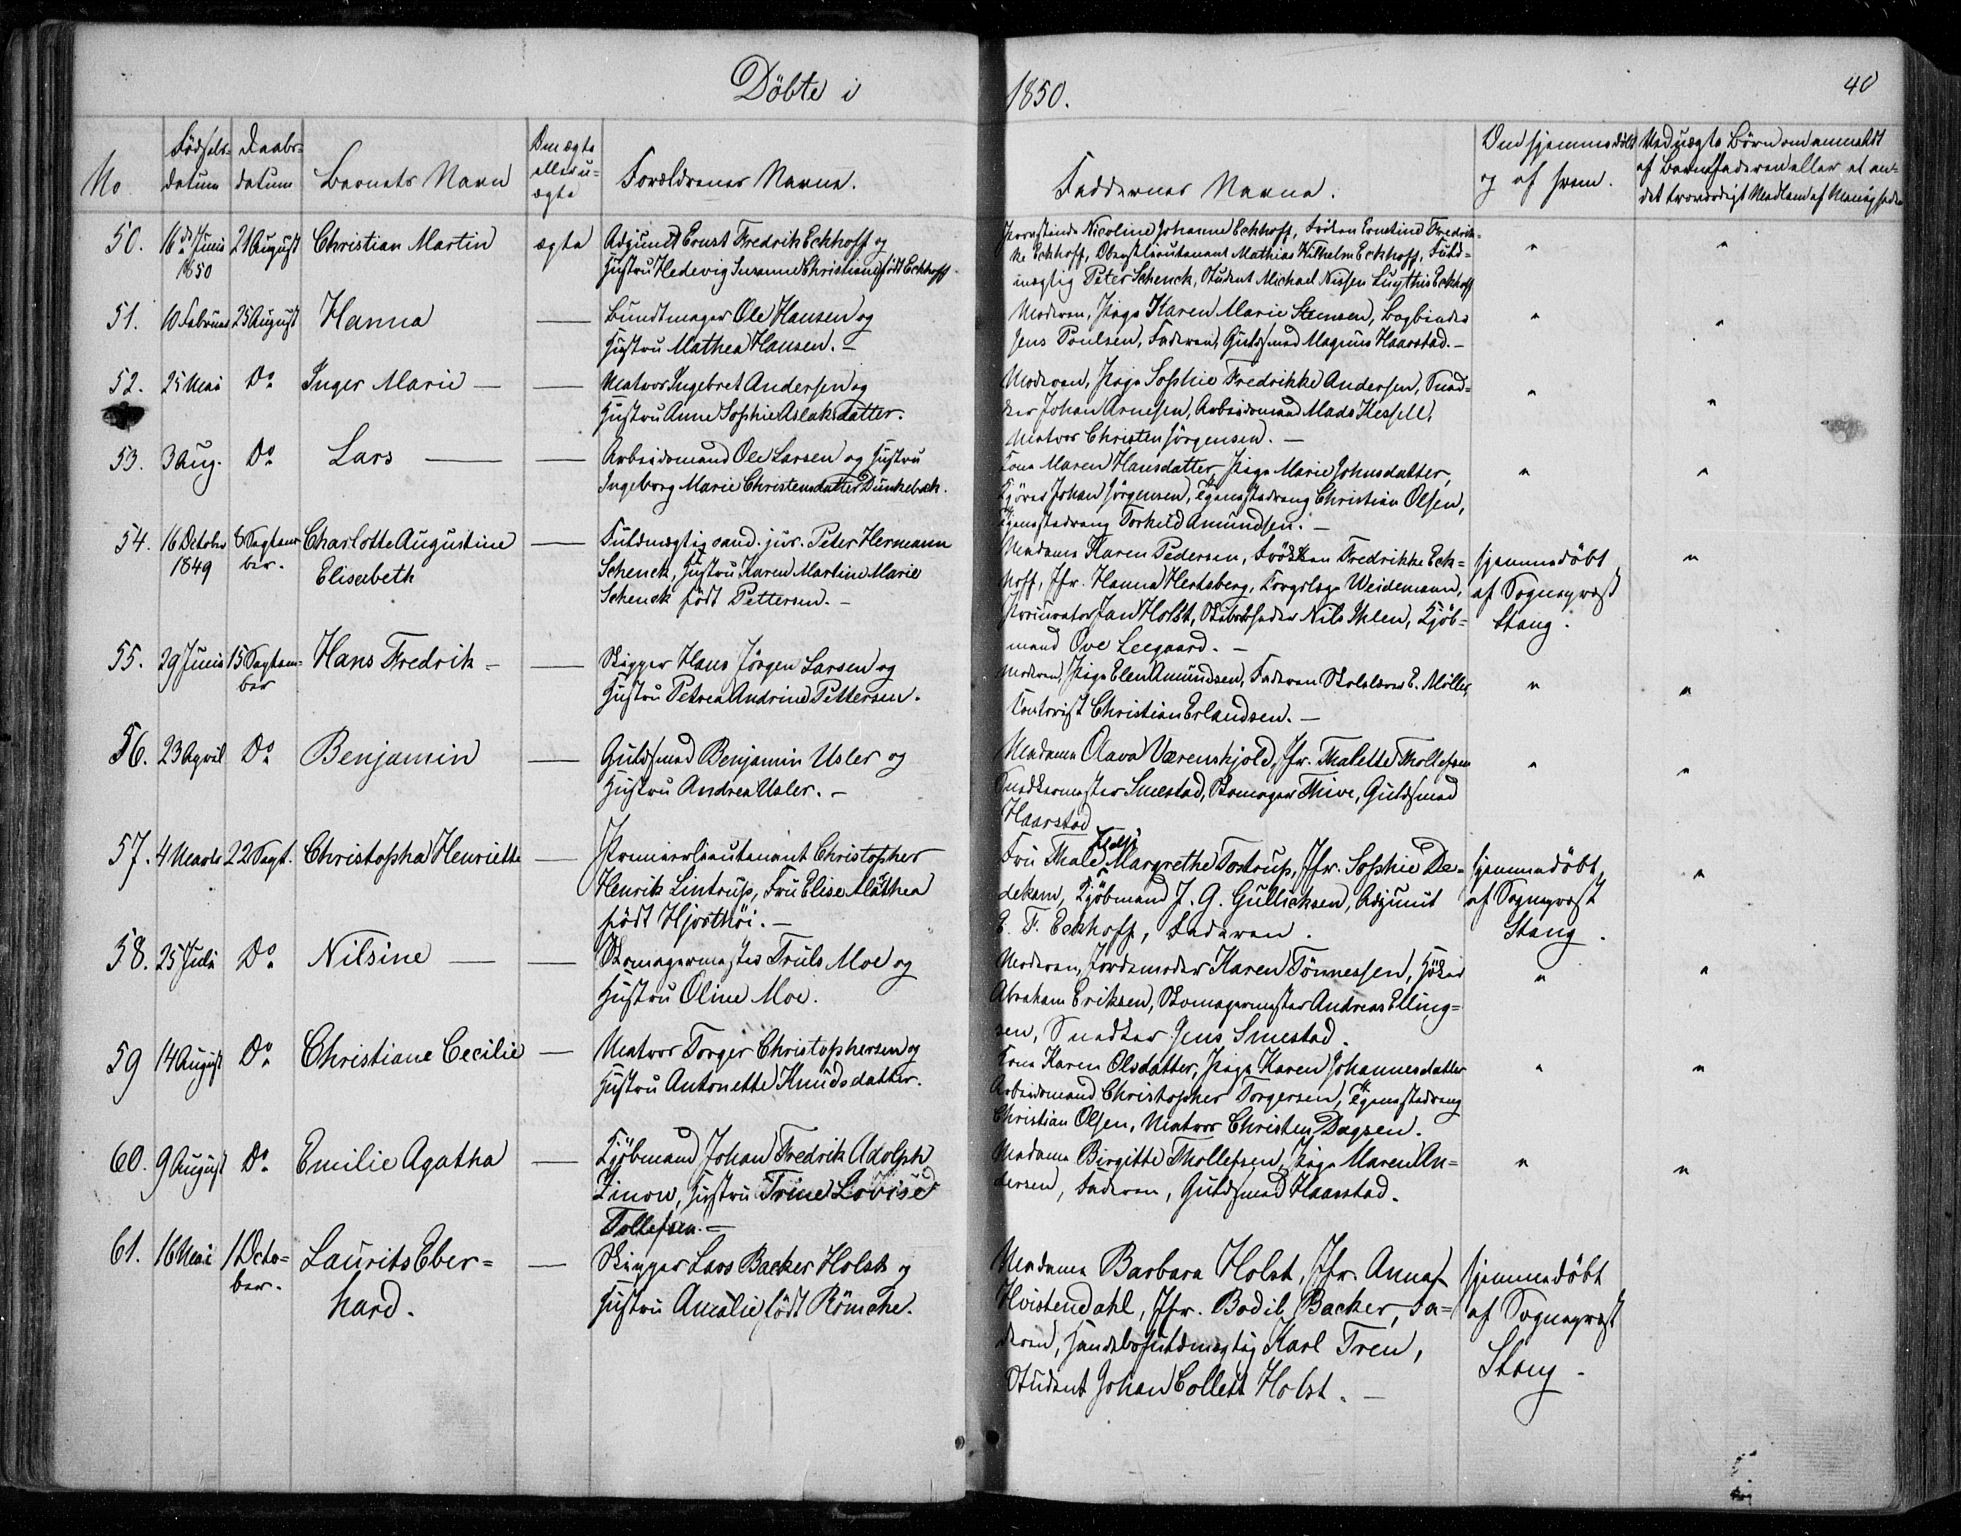 Döbte i 1850.
40
No
Fødselsdatum
Daabsdatum
Barnets Navn
Om ægte eller uægte
Forældrenes Navne.
Faddernes Navne.
Om hjemmedöbt og af hvem.
Ved uægte Børn om anmeldt af Barnefaderen eller et andet troværdigt Medlem af Menigheden
50. 16de Junii 1850 21 August Christian Martin ægte
Adjunct Ernst Fredrik Eckhoff og
Hustru Hedevig Susanne Christiane født Eckhoff.
Nicoline Johanne Eckhoff, Fröken Ernstine Fredrik-
ke Eckhoff, Oberstlieutenant Mathias Wilhelm Eckhoff, Fuld-
mægtig Peter Schenck, Student Michael Nissen Luythis Eckhoff
" "
51. 10 Februar 25 August Hanna —
Bundtmager Ole Hansen og
Hustru Mathea Hansen. —
Moderen, Pige Karen Marie Stensen, Bogbinder
Jens Poulsen, Faderen, Guldsmed Magnus Haarstad. —
" "
52. 25 Mai Do Inger Marie — —
Matros Ingebret Andersen og
Hustru Anne Sophie Aslaksdatter.
Moderen, Pige Sophie Fredrikke Andersen, Sned-
ker Johan Arnesen, Arbeidsmand Mads Kessell,
Matros Christen Jörgensen. —
" "
53. 3 Aug. Do Lars — —
Arbeidsmand Ole Larsen og Hustru
Ingeborg Marie Christensdatter Dunkebæk.
Kone Maren Hansdatter, Pige Marie Johnsdatter,
Kjører Johan Jörgensen, Tjenestedreng Christian Olsen,
Tjenestedreng Torkild Amundsen. —
" "
54. 16 October 1849 8 September. Charlotte Augustine Elisabeth —
Fuldmægtig cand. jur. Peter Hermann
Schenck, Hustru Karen Martine Marie
Schenck født Pettersen. —
Madame Karen Pedersen, Fröken Fredrikke Eck-
hoff, Jfr. Hanna Hertsberg, Weidemann,
Procurator Jan Holst, Nils Ihlen, Kjöb-
mand Ove Leegaard. —
hjemmedöbt
af Sognepræst
Stang.
"
55. 29 Junii 15 September Hans Fredrik — —
Skipper Hans Jörgen Larsen og
Hustru Petrea Andrine Pettersen.
Moderen, Pige Elen Amundsen, Faderen Skolelærer E. Möller,
Contorist Christian Erlandsen. —
" "
56. 23 April Do Benjamin —
Guldsmed Benjamin Usler og
Hustru Andrea Usler. —
Madame Olava Værenskjold, Jfr. Thalette Thollefsen
Snedkermester Smestad, Skomager Thive, Guldsmed
Haarstad
" "
57. 4 Marts 22 Sept. Christopha Henriette —
Premierlieutenant Christopher
Henrik Lintrup, Fru Elise Mathea
født Hjorthöi. —
Fru Thale Margrethe Tostrup, Jfr. Sophie De-
dekam, Kjöbmand J. G. Gullichsen, Adjunct
E. F. Eckhoff, Faderen.
hjemmedöbt
af Sognepræst
Stang.
"
58. 25 Juli Do Nilsine — —
Skomagermester Truls Moe og
Hustru Oline Moe.
Moderen, Jordemoder Karen Tönnessen, Höker
Abraham Eriksen, Skomagermester Andreas Elling-
sen, Snedker Jens Smestad.
" "
59 14 August Do Christiane Cecilie —
Matros Torger Christophersen og
Hustru Antonette Knudsdatter.
Kone Karen Olsdatter, Pige Karen Johannesdatter
Arbeidsmand Christopher Torgersen, Tjenestedreng
Christian Olsen, Matros Christen Dagsen.
" "
60. 9 August Do Emilie Agatha —
Kjöbmand Johan Fredrik Adolph
Zinow, Hustru Trine Lovise
Tollefsen. —
Madame Birgitte Thollefsen, Pige Maren An-
dersen, Faderen, Guldsmed Haarstad.
" "
61. 16 Mai 1 October. Laurits Eberhard. —
Skipper Lars Backer Holst og
Hustru Amalie født Römche.
Madame Barbara Holst, Jfr. Anna
Hvistendahl, Jfr. Bodil Backer, Fa-
deren, Handelsfuldmægtig Karl Tren,
Student Johan Collett Holst. —
hjemmedöbt
af Sognepræst
Stang.